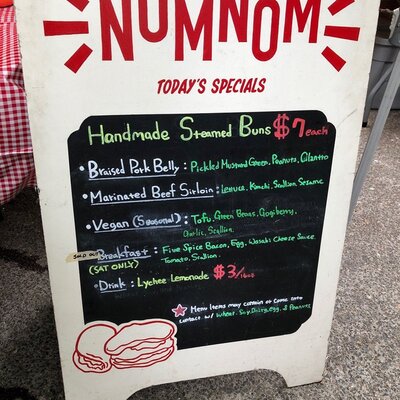 NOMNOM
TODAY'S SPECIALS
Handmade Steamed Buns $7 each
• Braised Pork Belly : Pickled Mustard Green, Peanuts, Cilantro
• Marinated Beef Sirloin : Lettuce, Kimchi, Scallion, Sesame
• Vegan (Seasonal) : Tofu, Green Beans, Gojiberry,
Garlic, Scallion
SOLD OUT Breakfast : Five Spice Bacon, Egg, Wasabi Cheese Sauce
(SAT ONLY) Tomato, Scallion
• Drink : Lychee Lemonade $3/
Menu Items may contain or come into
contact w/ Wheat, Soy, Dairy, egg, & Peanuts